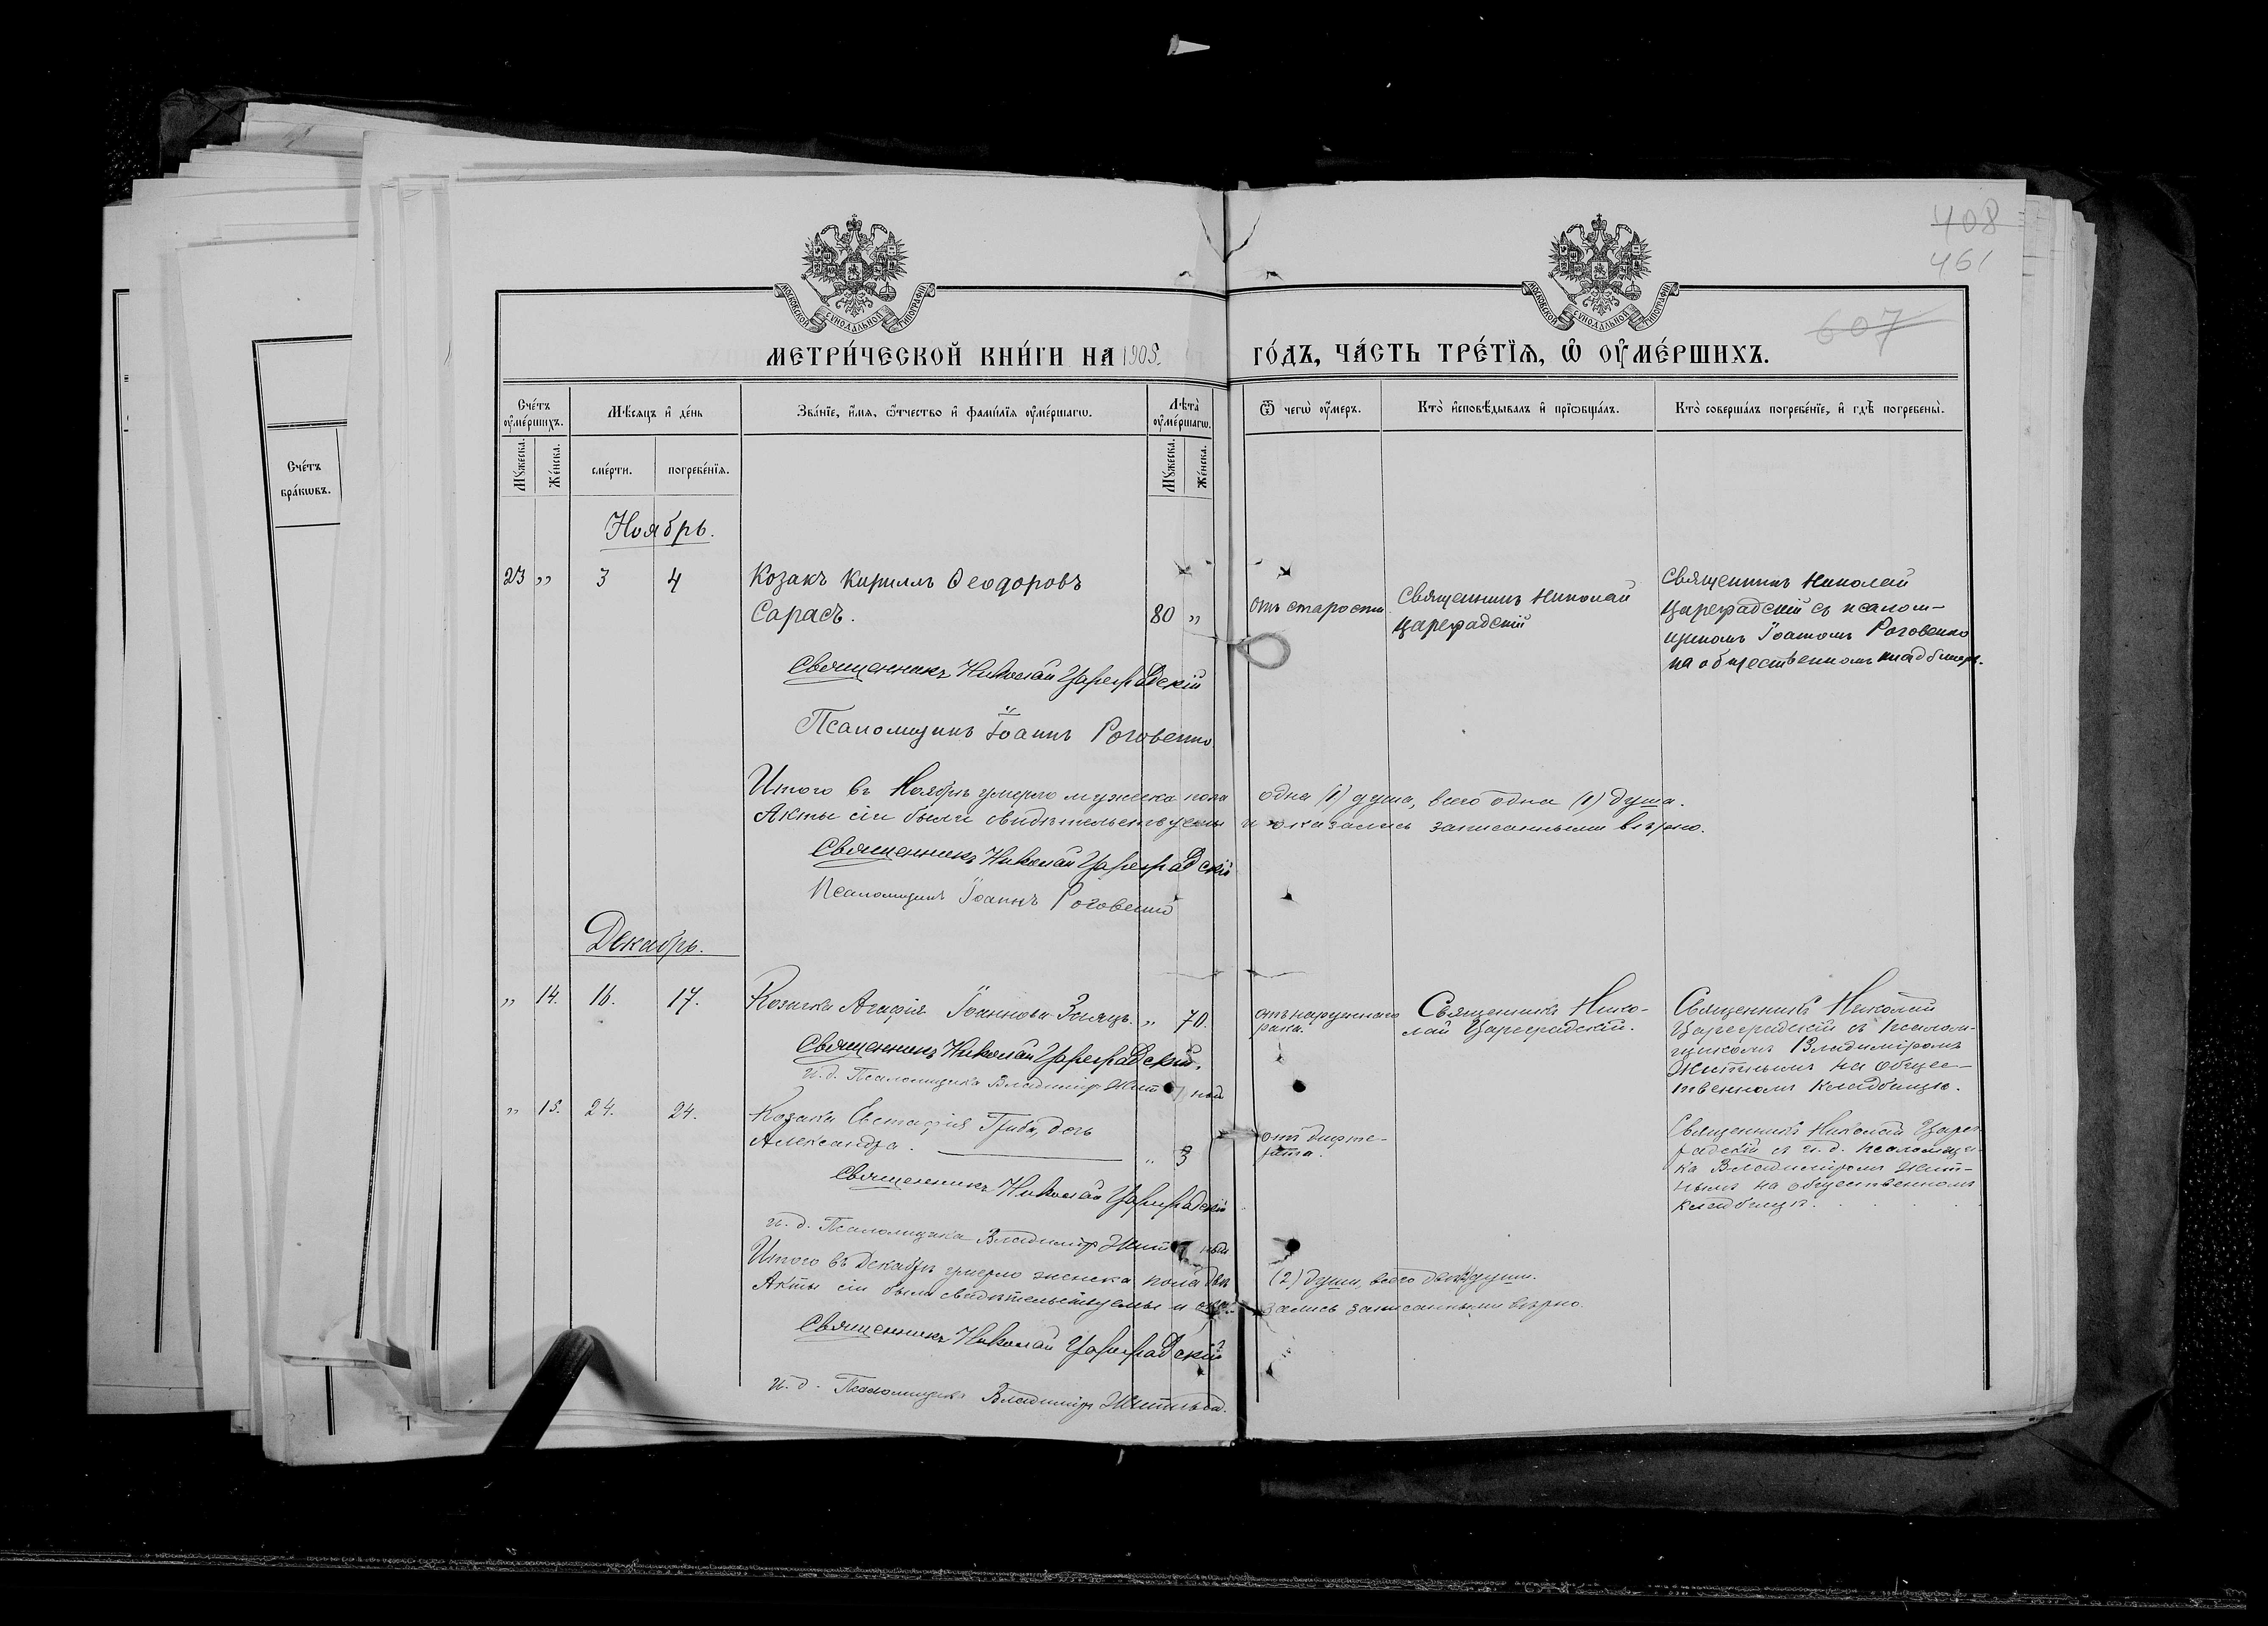 408
461
607
МОСКОВСКОЙ СѴНОДАЛЬНОЙ ТИПОГРАФІИ
МОСКОВСКОЙ СѴНОДАЛЬНОЙ ТИПОГРАФІИ
МЕТРИ́ЧЕСКОЙ КНИ́ГИ НА 1905.
ГО́ДЪ, ЧА́СТЬ ТРЕ́ТЇѦ, Ѡ҆ ОУ҆МЕ́РШИХЪ.
Сче́тъ
оу҆ме́ршихъ.
Мѣ́сяцъ и҆ де́нь
Зва́нїе, и҆́мѧ, ѻ҆́тчество и҆ фами́лїѧ оу҆ме́ршагѡ.
Лѣ́та
оу҆ме́ршагѡ.
Ѿ чегѡ̀ оу҆́меръ.
Кто̀ и҆сповѣ́дывалъ и҆ прїѡбща́лъ.
Кто̀ соверша́лъ погребе́нїе, и҆ гдѣ̀ погребены̀.
Мꙋ́жеска.
Же́нска.
сме́рти.
погребе́нїѧ.
Мꙋ́жеска.
Же́нска.
Сче́тъ
бра́кѡвъ.
Ноябрь.
23 „ 3 4 Козакъ Кириллъ Ѳеодоровъ
Сарасъ. 80 „
отъ старости
Священникъ Николай
Цареградскій
Священникъ Николай
Цареградскій съ псалом-
щикомъ Іоанномъ Роговенко
на общественномъ кладбищѣ.
Священникъ Николай Цареградскій
Псаломщикъ Іоаннъ Роговенко
Итого въ Ноябрѣ умерло мужеска пола одна (1) душа, всего одна (1) душа.
Акты сіи были свидѣтельствуемы и оказались записанными вѣрно.
Священникъ Николай Цареградскій
Псаломщикъ Іоаннъ Роговенко
Декабрь.
„ 14. 16. 17. Козачка Агафія Іоаннова Заяцъ. „ 70.
отъ наружнаго
рака.
Священникъ Нико-
лай Цареградскій.
Священникъ Николай
Цареградскій съ псалом-
щикомъ Владиміромъ
Житнымъ на общес-
твенномъ кладбищѣ.
Священникъ Николай Цареградскій.
и. д. Псаломщика Владиміръ Житный
„ 15. 24. 24. Козака Евстафія Гриба, дочь
Александра. „ 3
отъ дифте-
рита.
Священникъ Николай Царег
радскій съ и. д. псаломщи-
ка Владиміромъ Жит-
нымъ на общественномъ
кладбищѣ.
Священникъ Николай Цареградскій
и. д. Псаломщика Владиміръ Житный
Итого въ Декабрѣ умерло женска пола двѣ (2) души, всего двѣ (2) души.
Акты сіи были свидѣтельствуемы и оказались записанными вѣрно.
Священникъ Николай Цареградскій
и. д. Псаломщика Владиміръ Житный.